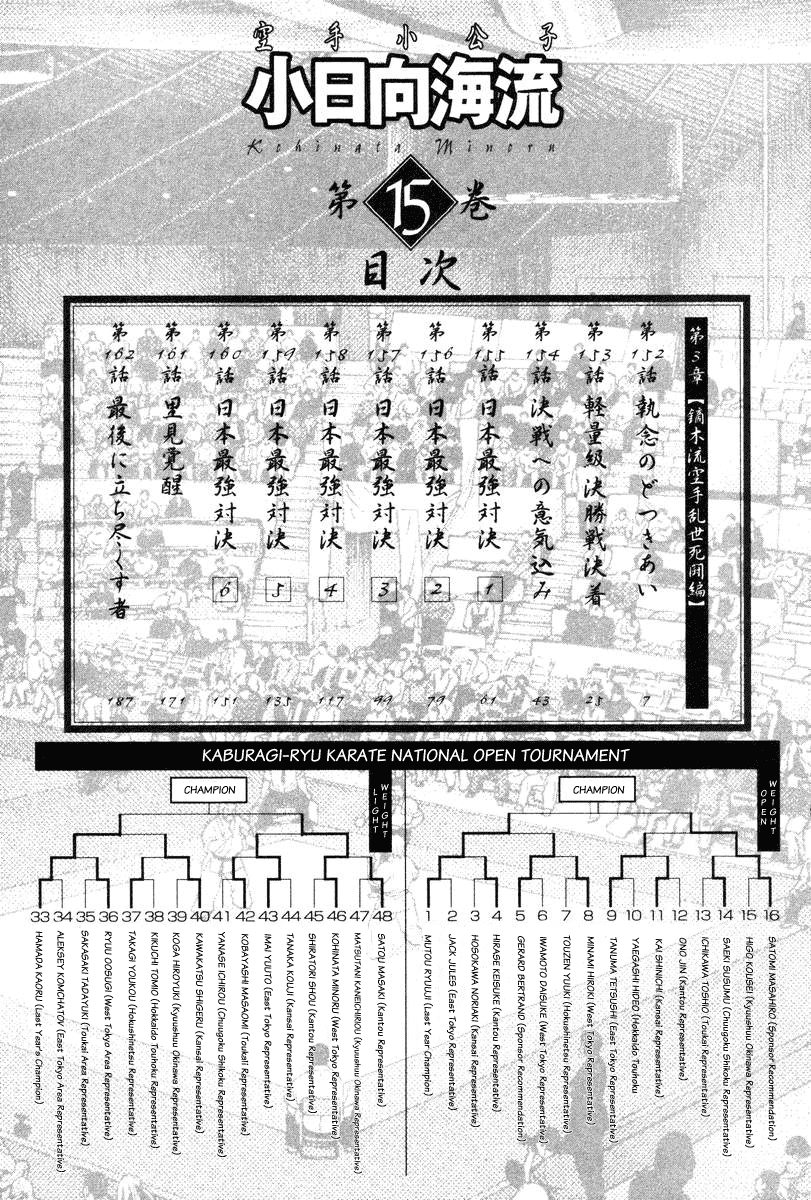 空手小公子
小日向海流
Kohinata Minoru
第15巻
目次
第3章【鏑木流空手乱世死闘編】
第152話 執念のどつきあい 7
第153話 軽量級決勝戦決着 25
第154話 決戦への意気込み 43
第155話 日本最強対決 1 61
第156話 日本最強対決 2 79
第157話 日本最強対決 3 99
第158話 日本最強対決 4 117
第159話 日本最強対決 5 135
第160話 日本最強対決 6 151
第161話 里見覚醒 171
第162話 最後に立ち尽くす者 187
KABURAGI-RYU KARATE NATIONAL OPEN TOURNAMENT
LIGHT WEIGHT
CHAMPION
33 HAMADA KAORU (Last Year's Champion)
34 ALEKSEY KOMCHATOV (East Tokyo Area Representative)
35 SAKASAKI TADAYUKI (Toukai Area Representative)
36 RYUU OOSUGI (West Tokyo Area Representative)
37 TAKAGI YOUKOU (Hokushinetsu Representative)
38 KIKUCHI TOMIO (Hokkaido Touhoku Representative)
39 KOGA HIROYUKI (Kyuushuu Okinawa Representative)
40 KAWAKATSU SHIGERU (Kansai Representative)
41 YANASE ICHIROU (Chuugoku Shikoku Representative)
42 KOBAYASHI MASAOMI (Toukai Representative)
43 IMAI YUUTO (East Tokyo Representative)
44 TANAKA KOUJI (Kansai Representative)
45 SHIRATORI SHOU (Kantou Representative)
46 KOHINATA MINORU (West Tokyo Representative)
47 MATSUTANI KANEICHIROU (Kyuushuu Okinawa Representative)
48 SATOU MASAKI (Kantou Representative)
OPEN WEIGHT
CHAMPION
1 MUTOU RYUUJI (Last Year Champion)
2 JACK JULES (East Tokyo Representative)
3 HOSOKAWA NORIAKI (Kansai Representative)
4 HIRASE KEISUKE (Kantou Representative)
5 GERARD BERTRAND (Sponsor Recommendation)
6 IWAMOTO DAISUKE (West Tokyo Representative)
7 TOUZEN YUUKI (Hokushinetsu Representative)
8 MINAMI HIROKI (West Tokyo Representative)
9 TANUMA TETSUSHI (East Tokyo Representative)
10 YAEGASHI HIDEO (Hokkaido Touhoku
11 KAI SHINICHI (Kansai Representative)
12 ONO JIN (Kantou Representative)
13 ICHIKAWA TOSHIO (Toukai Representative)
14 SAEKI SUSUMU (Chuugoku Shikoku Representative)
15 HIGO KOUSEI (Kyuushuu Okinawa Representative)
16 SATOMI MASAHIRO (Sponsor Recommendation)